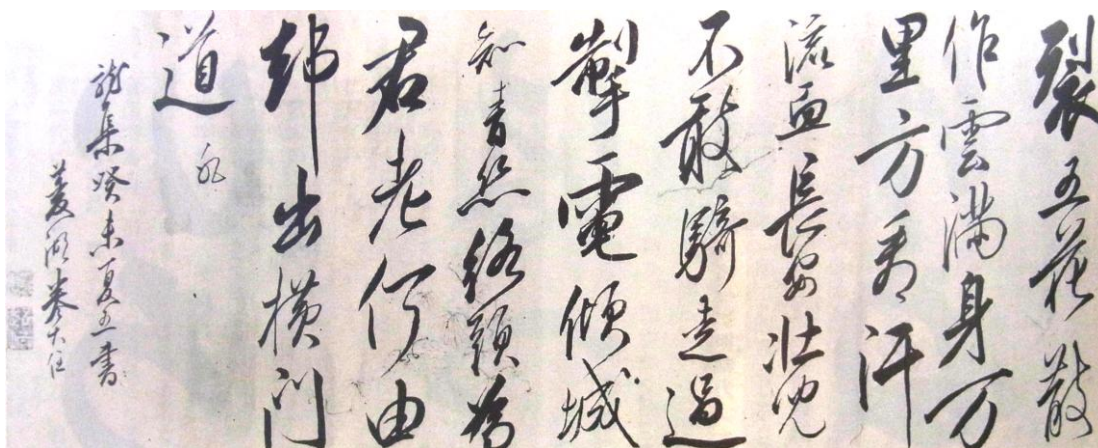 裂五花散
作雲滿身万
里方看汗
流血長安壯兒
不敢騎走過
掣電傾城
知青絲絡頭為
君老何由
却出橫門
道
龍集癸未夏五書
菱湖巻大任